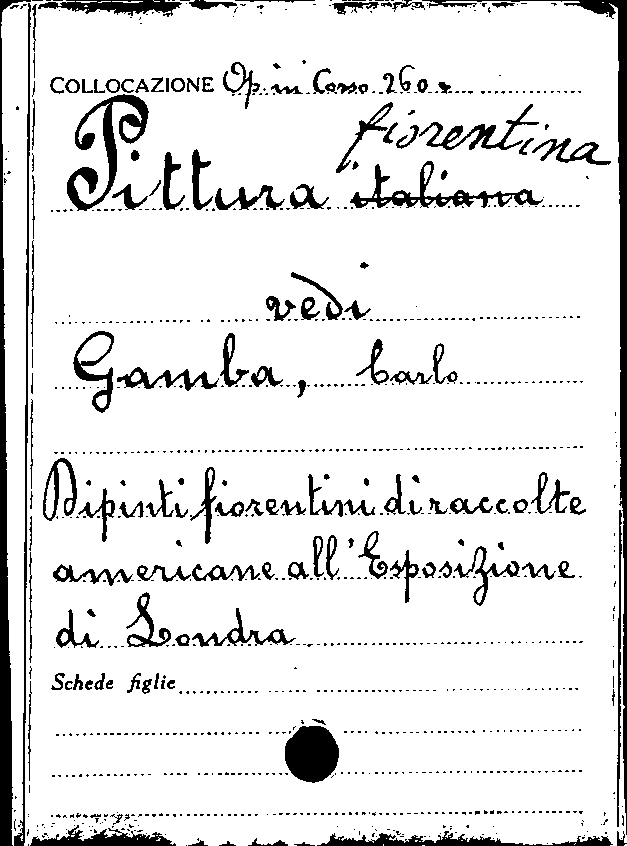 COLLOCAZIONE Op. in Corso 260.
fiorentina
Pittura italiana
vedi
Gamba, Carlo
Dipinti fiorentini di raccolte
americane all'Esposizione
di Londra
Schede figlie